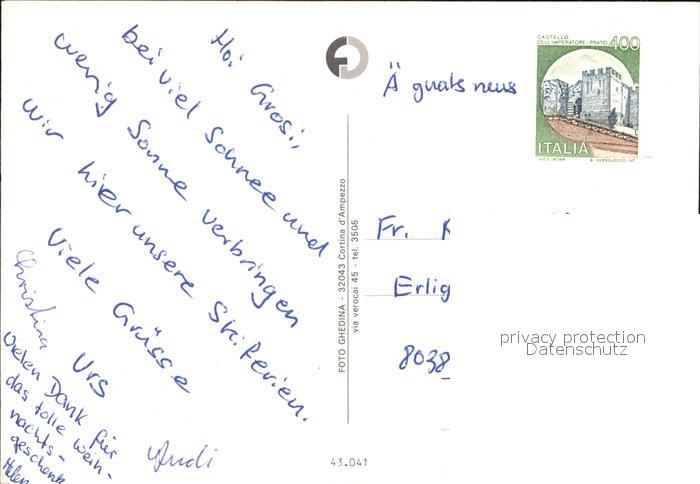 Hoi Grosi,
bei viel Schnee und
wenig Sonne verbringen
wir hier unsere Skiferien.
Viele Grüsse
Urs
Christina
Vielen Dank für
das tolle Weih-
nachts-
geschenk
Helen
Andi
Ä guats neus
CASTELLO
DELL'IMPERATORE - PRATO
400
ITALIA
FOTO GHEDINA - 32043 Cortina d'Ampezzo
via verocai 45 - tel. 3505
Fr.
Erlig
8038
privacy protection
Datenschutz
43.041